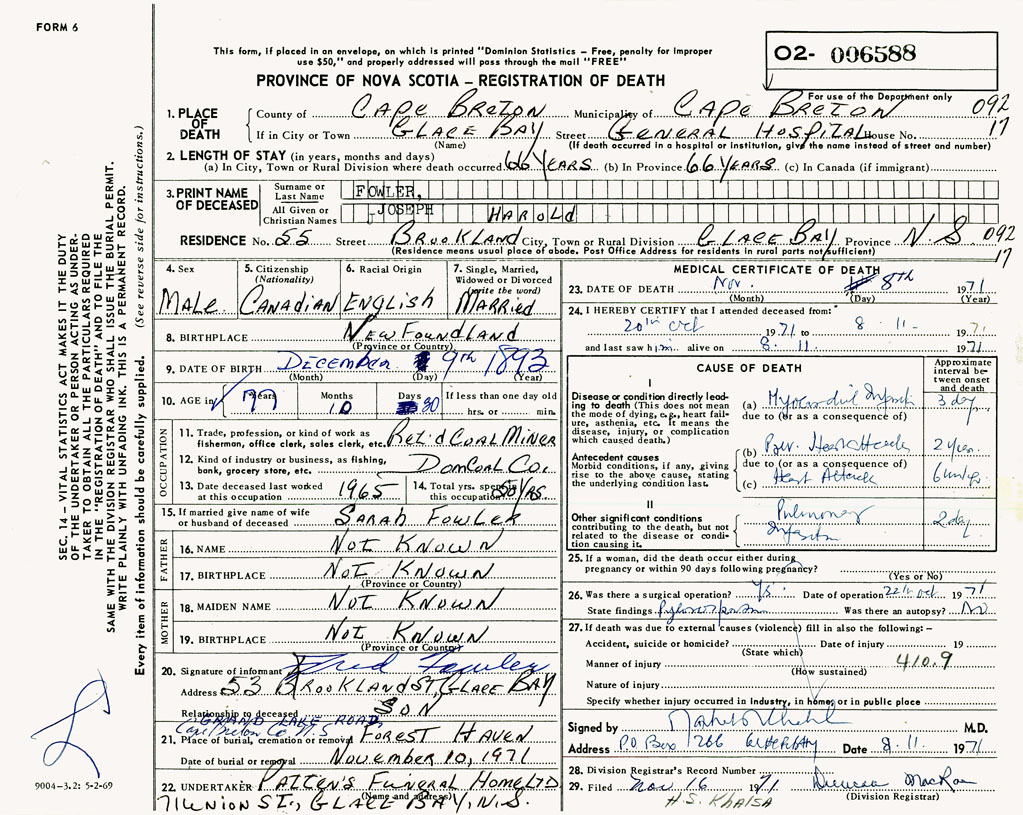 FORM 6
This form, if placed in an envelope, on which is printed "Dominion Statistics – Free, penalty for improper
use $50," and properly addressed will pass through the mail "FREE"
02- 006588
PROVINCE OF NOVA SCOTIA – REGISTRATION OF DEATH
For use of the Department only
1. PLACE OF DEATH
County of CAPE BRETON Municipality of CAPE BRETON 092
If in City or Town GLACE BAY Street GENERAL HOSPITAL House No. 17
(Name) (If death occurred in a hospital or institution, give the name instead of street and number)
2. LENGTH OF STAY (in years, months and days)
(a) In City, Town or Rural Division where death occurred 66 YEARS (b) In Province 66 YEARS (c) In Canada (if immigrant)
3. PRINT NAME OF DECEASED
Surname or Last Name FOWLER,
All Given or Christian Names JOSEPH HAROLd
RESIDENCE No. 55 Street BROOKLAND City, Town or Rural Division GLACE BAY Province N S. 092
(Residence means usual place of abode. Post Office Address for residents in rural parts not sufficient) 17
4. Sex MALE
5. Citizenship (Nationality) CANADIAN
6. Racial Origin ENGLISH
7. Single, Married, Widowed or Divorced (write the word) MARRIED
8. BIRTHPLACE NEWFOUNDLAND
(Province or Country)
9. DATE OF BIRTH DECEMBER 9th 1893
(Month) (Day) (Year)
10. AGE in Years 77 Months 10 Days 30 If less than one day old
hrs. or min.
OCCUPATION
11. Trade, profession, or kind of work as
fishermen, office clerk, sales clerk, etc. RET'd COAL MINER
12. Kind of industry or business, as fishing,
bank, grocery store, etc. DOMCOAL CO.
13. Date deceased last worked
at this occupation 1965
14. Total yrs. spent in
this occupation 50 YRS.
15. If married give name of wife
or husband of deceased SARAH FOWLER
FATHER
16. NAME NOT KNOWN
17. BIRTHPLACE NOT KNOWN
(Province or Country)
MOTHER
18. MAIDEN NAME NOT KNOWN
19. BIRTHPLACE NOT KNOWN
(Province or Country)
20. Signature of informant Fred Fowler
Address 53 BROOKLAND ST, GLACE BAY
Relationship to deceased SON
GRAND LAKE ROAD,
Cape Breton Co. N.S.
21. Place of burial, cremation or removal FOREST HAVEN
Date of burial or removal NOVEMBER 10, 1971
22. UNDERTAKER PATTEN'S FUNERAL HOME LTD
(Name and address)
71 UNION ST., GLACE BAY, N.S.
MEDICAL CERTIFICATE OF DEATH
23. DATE OF DEATH Nov. 8th 1971
(Month) (Day) (Year)
24. I HEREBY CERTIFY that I attended deceased from:
20th Oct 1971 to 8 - 11 - 1971
and last saw him alive on 8. 11. 1971
CAUSE OF DEATH
Approximate interval between onset and death
I
Disease or condition directly leading to death (This does not mean the mode of dying, e.g., heart failure, asthenia, etc. It means the disease, injury, or complication which caused death.)
(a) Myocardial Infarct 3 day
due to (or as a consequence of)
Antecedent causes
Morbid conditions, if any, giving rise to the above cause, stating the underlying condition last.
(b) Prev. Heart Attack
due to (or as a consequence of)
(c) Heart Attack
II
Other significant conditions
contributing to the death, but not related to the disease or condition causing it.
Pulmonary
Infarction 2 day
25. If a woman, did the death occur either during
pregnancy or within 90 days following pregnancy?
(Yes or No)
26. Was there a surgical operation? Yes. Date of operation 22nd Oct 1971
State findings Was there an autopsy? NO
27. If death was due to external causes (violence) fill in also the following: –
Accident, suicide or homicide? Date of injury 19
(State which)
Manner of injury 410.9
(How sustained)
Nature of injury
Specify whether injury occurred in industry, in home, or in public place
Signed by M.D.
Address P.O Box 1266 GLACE BAY Date 8. 11. 1971
28. Division Registrar's Record Number
29. Filed Nov 16 1971
(Division Registrar)
H.S. Khalsa
SEC. 14 – VITAL STATISTICS ACT MAKES IT THE DUTY
OF THE UNDERTAKER OR PERSON ACTING AS UNDER-
TAKER TO OBTAIN ALL THE PARTICULARS REQUIRED
IN THE "REGISTRATION OF DEATH" AND TO FILE THE
SAME WITH THE DIVISION REGISTRAR WHO SHALL ISSUE THE BURIAL PERMIT.
WRITE PLAINLY WITH UNFADING INK. THIS IS A PERMANENT RECORD.
Every item of information should be carefully supplied. (See reverse side for instructions.)
9004-3.2: 5-2-69